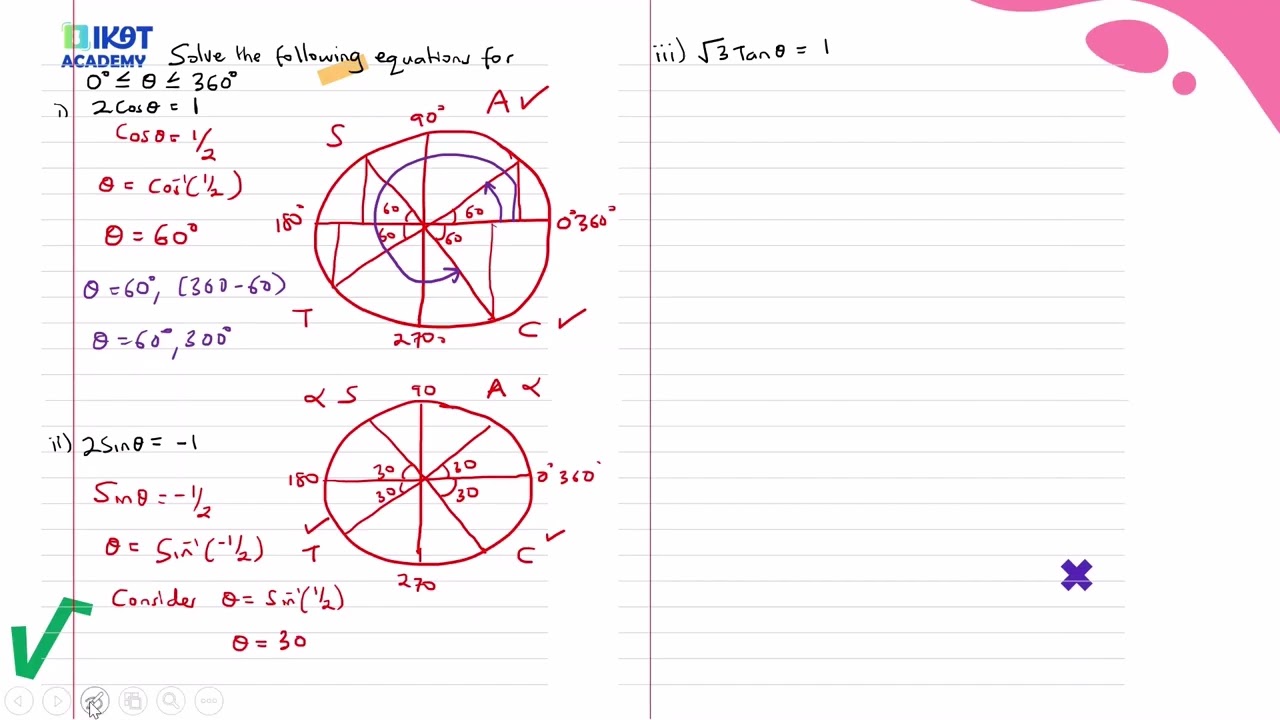 IKOT
ACADEMY
Solve the following equations for
0° ≤ θ ≤ 360°
i) 2Cosθ = 1
Cosθ = 1/2
θ = Cos⁻¹(1/2)
θ = 60°
θ = 60°, (360 - 60)
θ = 60°, 300°
90°
A ✓
S
180°
0° 360°
60
60
60
60
T
C ✓
270°
ii) 2Sinθ = -1
Sinθ = -1/2
θ = Sin⁻¹(-1/2)
Consider θ = Sin⁻¹(1/2)
θ = 30
α S
90
A α
180
0° 360°
30
30
30
30
✓
T
C ✓
270
iii) √3 Tanθ = 1